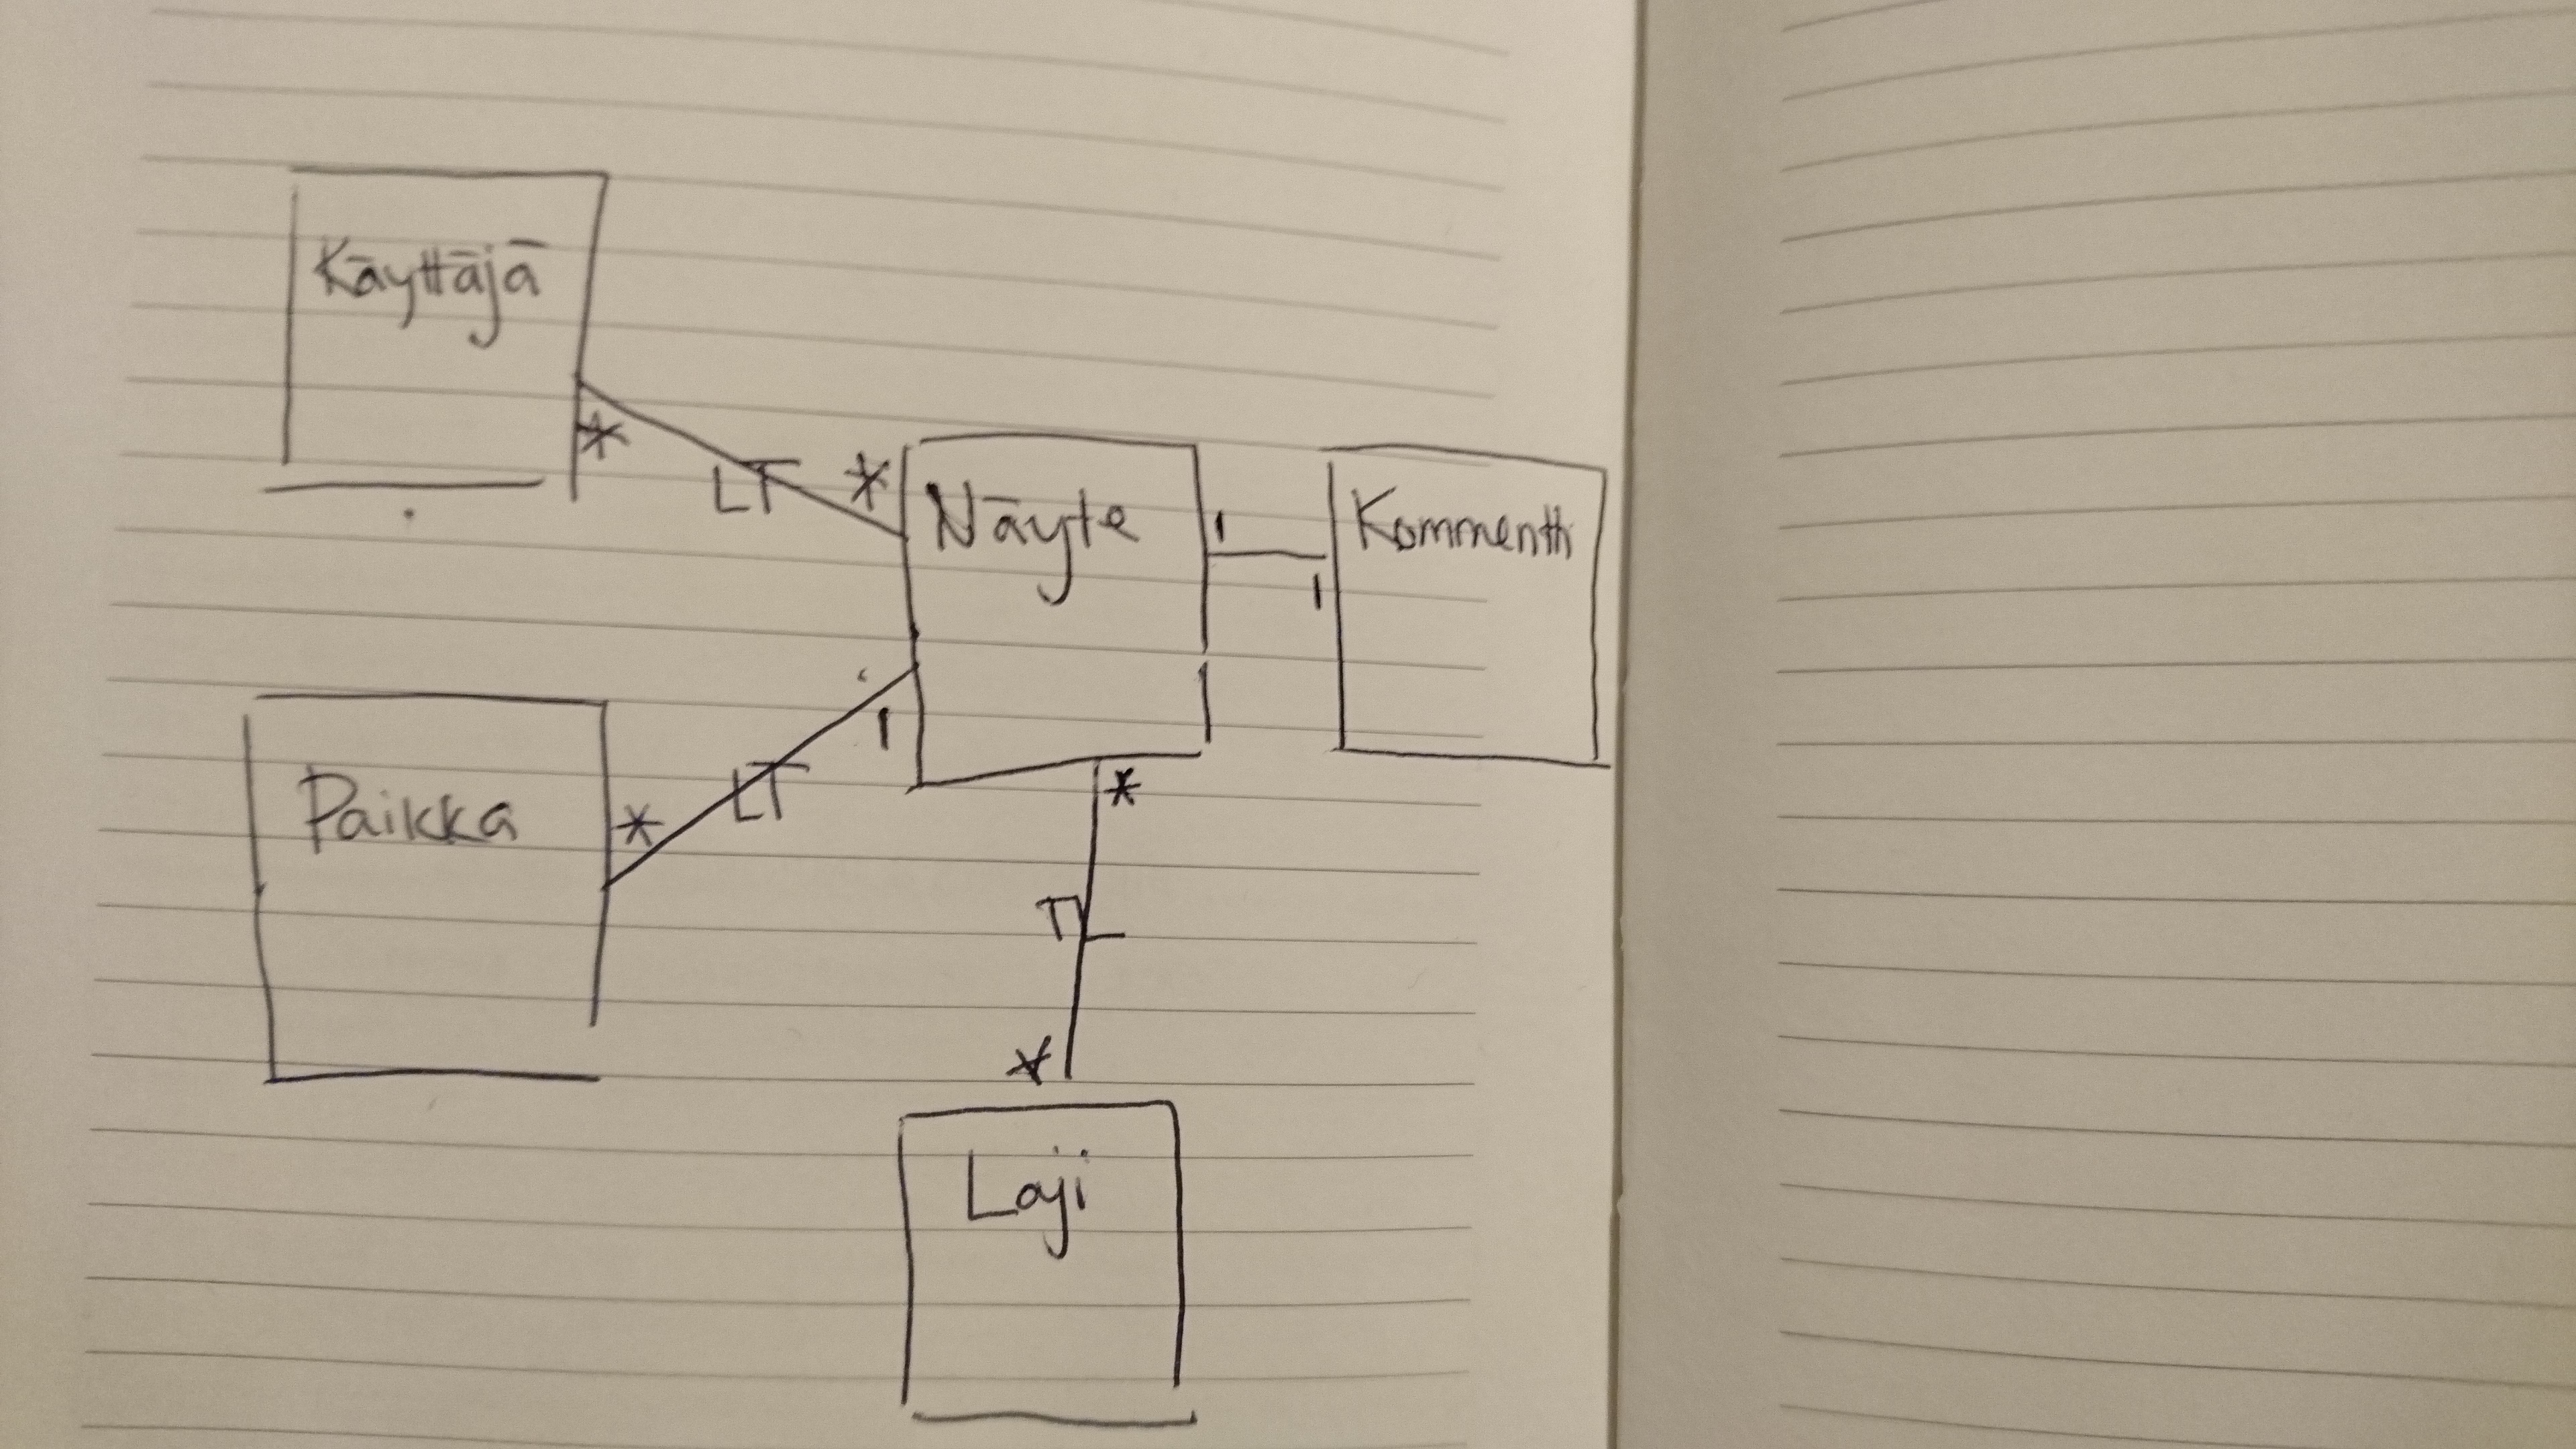 Käyttäjä
*
LT
*
Näyte
1
1
Kommentti
Paikka
*
LT
1
*
TL
*
Laji